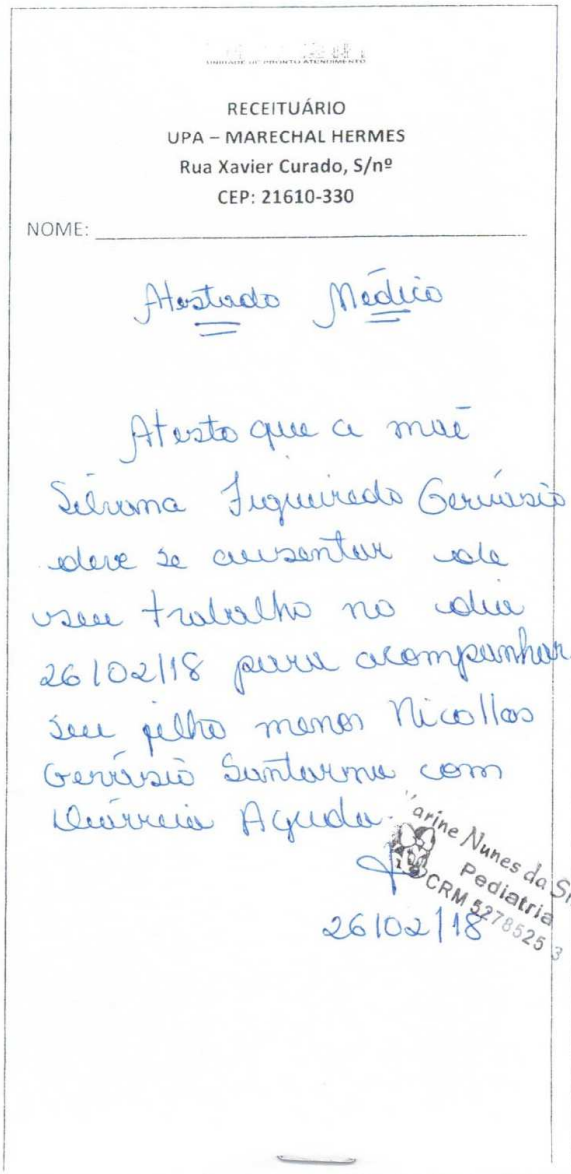 UNIDADE DE PRONTO ATENDIMENTO
RECEITUÁRIO
UPA – MARECHAL HERMES
Rua Xavier Curado, S/nº
CEP: 21610-330
NOME:
Atestado Médico
Atesto que a mãe
Silvana Figueiredo Gervásio
deve se ausentar de
seu trabalho no dia
26/02/18 para acompanhar
seu filho menor Nicollas
Gervásio Santarma com
Diárreia Aguda.
arine Nunes da S
Pediatria
CRM 5278525 3
26/02/18